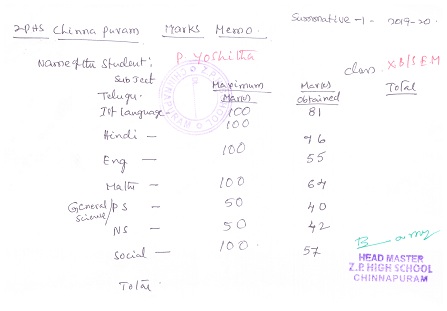 ZPHS Chinna puram Marks Memo. Summative-1- 2019-20.
Name of the Student: P Yoshitha
class XB/S EM
Subject Maximum Marks Marks obtained Total
Telugu
Ist Language - 100 81
Hindi - 100 46
Eng - 100 55
Math - 100 64
General Science/PS - 50 40
NS - 50 42
Social - 100 57
Total
HEAD MASTER
Z.P. HIGH SCHOOL
CHINNAPURAM